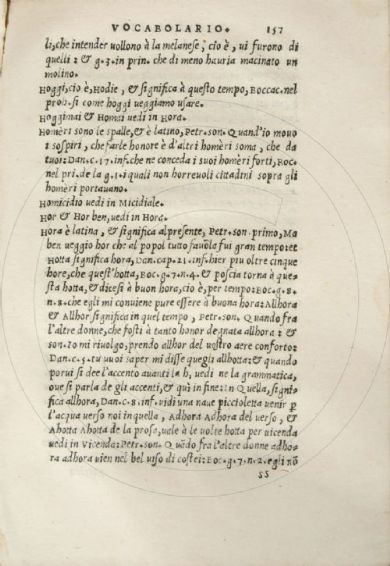 VOCABOLARIO. 157
li, che intender uollono à la melanese, cio è, ui furono di
quelli: & g. 3. in prin. che di meno hauria macinato un
molino.
Hoggi, cio è, Hodie, & significa à questo tempo, Boccac. nel
proh. si come hoggi ueggiamo usare.
Hoggimai & Homai uedi in Hora.
Homèri sono le spalle, & è latino, Petr. son. Quand'io mouo
i sospiri, che farle honore è d'altri homèri soma, che da
tuoi: Dan. c. 17. inf. che ne conceda i suoi homèri forti, Boc.
nel pri. de la g. 1. i quali non horreuoli cittadini sopra gli
homèri portauano.
Homicidio uedi in Micidiale.
Hor & Hor ben, uedi in Hora.
Hora è latina, & significa al presente, Petr. son. primo, Ma
ben ueggio hor che al popol tutto fauola fui gran tempo: et
Hotta significa hora, Dan. cap. 21. inf. hier piu oltre cinque
hore, che quest'hotta, Boc. g. 7. n. 4. & poscia torna à que
sta hotta, & dicesi à buon hora, cio è, per tempo: Boc. g. 8.
n. 8. che egli mi conuiene pure essere à buona hora: Allhora
& Allhor significa in quel tempo, Petr. son. Quando fra
l'altre donne, che fosti à tanto honor degnata allhora: &
son. Io mi riuolgo, prendo allhor del uostro aere conforto:
Dan. c. 5. tu uuoi saper mi disse quegli allhotta: & quando
porui si dee l'accento auanti la h, uedi ne la grammatica,
oue si parla de gli accenti, & quì in fine: in Quella, signi-
fica allhora, Dan. c. 8. inf. uidi una naue piccioletta uenir p
l'acqua uerso noi in quella, Adhora Adhora del uerso, &
Ahotta Ahotta de la prosa, uale à le uolte hotta per uicenda
uedi in Vicenda: Petr. son. Quãdo fra l'altre donne adho-
ra adhora uien nel bel uiso di costei: Boc. g. 7. n. 2. egli nõ
SS